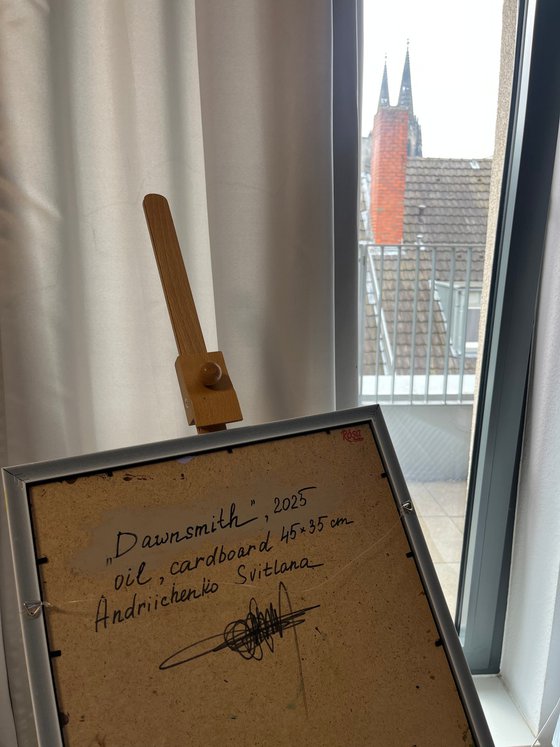 Rosa
„Dawnsmith", 2025
oil, cardboard 45×35 cm
Andriichenko Svitlana